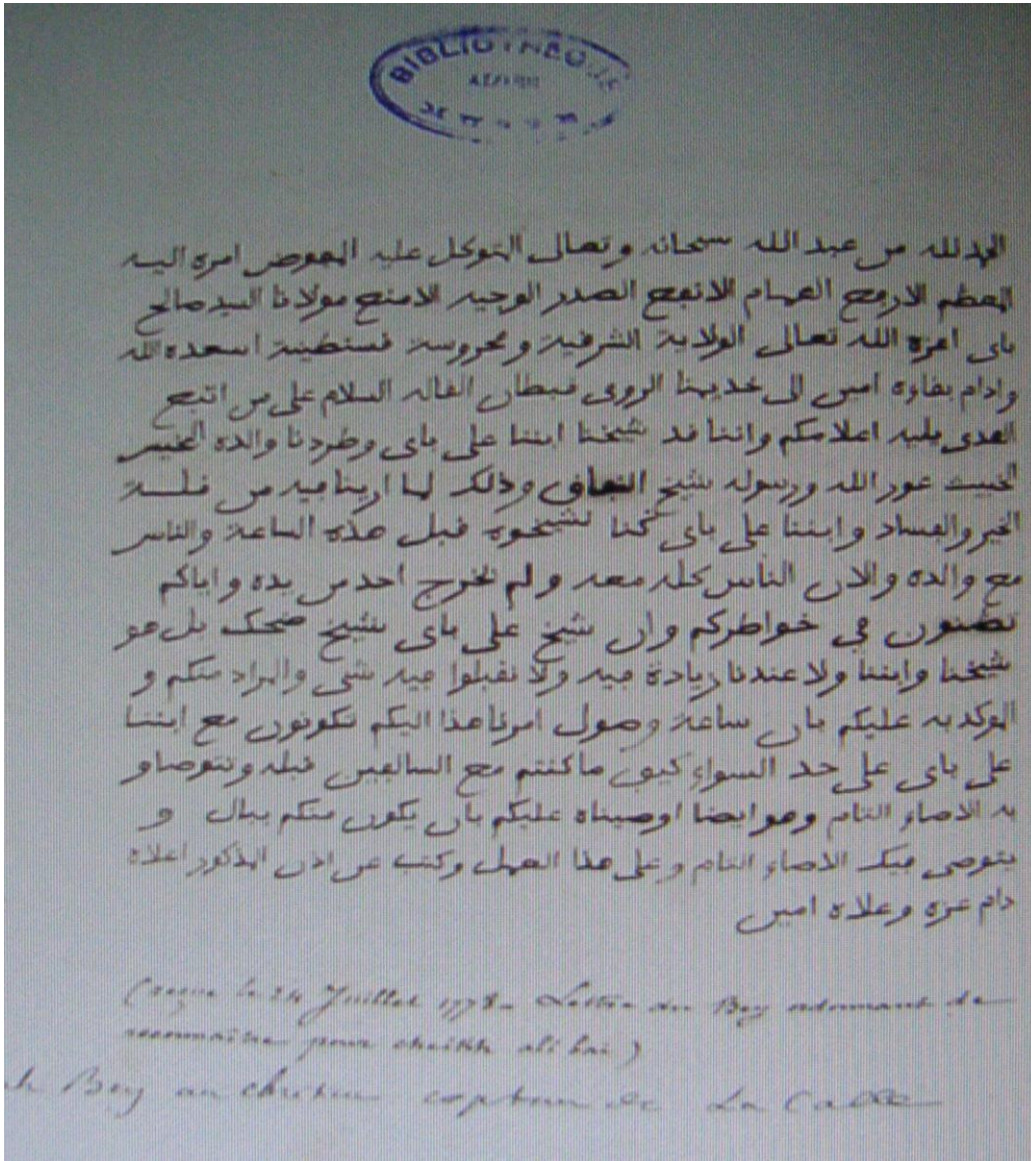 BIBLIOTHEQUE
الحمد لله من عبد الله سبحانه وتعالى المتوكل عليه المفوض امره اليه
المعظم الارفع الهمام الانفع الصدر الوجيه الامنع مولانا السيد صالح
باي امره الله تعالى الولاية الشرقية ومحروسة قسنطينة اسعده الله
وادام بقاءه امين الى خديمنا الرومي قبطان القاله السلام على من اتبع
الهدى يليه اعلامكم واننا قد شيخنا ابننا علي باي وطردنا والده
الخبيث عدو الله ورسوله شيخ النفاق وذلك لما اريناه فيه من قلة
الخير والفساد وابننا علي باي كنا نشيخوه قبل هذه الساعة والناس
مع والده والان الناس كله معه ولم يخرج احد من يده واياكم
تظنون في خواطركم وان شيخ علي باي شيخ ضحك بل هو
شيخنا وابننا ولا عندنا زيادة فيه ولا تقبلوا فيه شي والمراد منكم و
الموكد به عليكم بان ساعة وصول امرنا هذا اليكم تكونون مع ابننا
علي باي على حد السواء كيف ما كنتم مع السالفين قبله وتتوصاو
به الاصاء التام وهو ايضا اوصيناه عليكم بان يكون منكم ببال و
يتوصى فيك الاصاء التام وعلى هذا العمل وكتب عن اذن المذكور اعلاه
دام عزه وعلاه امين
(reçue le 24 Juillet 1778 - Lettre du Bey ordonnant de
reconnaitre pour cheikh ali bai)
Bey au chretien captan de La Calle